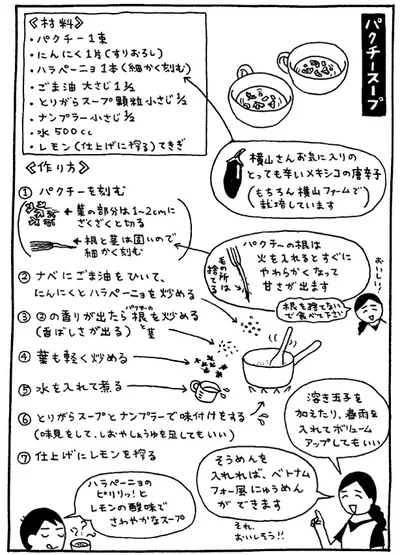 パクチースープ
《材料》
・パクチー1束
・にんにく1片(すりおろし)
・ハラペーニョ1本(細かく刻む)
・ごま油 大さじ1½
・とりがらスープ顆粒小さじ½
・ナンプラー小さじ½
・水 500cc
・レモン(仕上げに搾る)てきぎ
横山さんお気に入りの
とっても辛いメキシコの唐辛子
(もちろん横山ファームで
栽培しています)
《作り方》
① パクチーを刻む
←葉の部分は1~2cmに
ざくざくと切る
←根と茎は固いので
細かく刻む
パクチーの根は
火を入れるとすぐに
やわらかくなって
甘さが出ます
毛の所は
捨てる
おいしい!
根を捨てないで
食べて下さい
② ナベにごま油をひいて、
にんにくとハラペーニョを炒める
③ ②の香りが出たら根を炒める
(香ばしさが出る)
と
茎
④ 葉も軽く炒める
⑤ 水を入れて煮る
⑥ とりがらスープとナンプラーで味付けをする
(味見をして、しおやしょうゆを足してもいい)
⑦ 仕上げにレモンを搾る
溶き玉子を
加えたり、春雨を
入れてボリューム
アップしてもいい
そうめんを
入れれば、ベトナム
フォー風にゅうめん
ができます
それ、
おいしそう!!
ハラペーニョの
ピリリッ!と
レモンの酸味で
さわやかなスープ